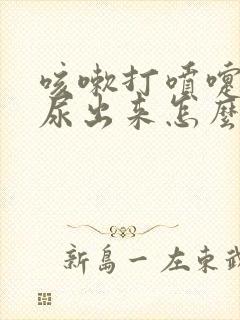 咳嗽打噴嚏
尿出来怎麼
新島一 左東武